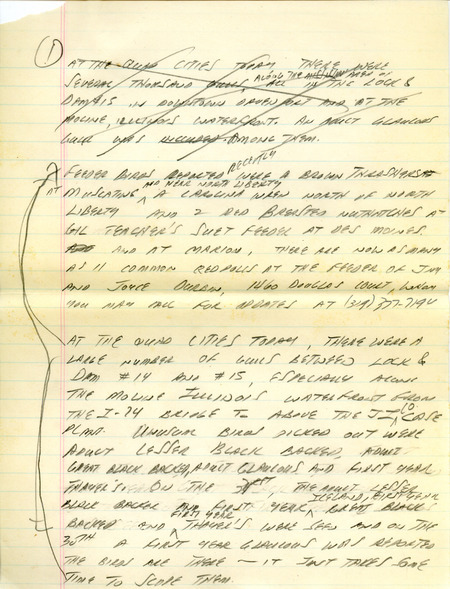 ①
AT THE QUAD CITIES TODAY THERE WERE
SEVERAL THOUSAND GULLS, ALONG THE MISSISSIPPI IN THE LOCK &
DAM 15 IN DOWNTOWN DAVENPORT AND AT THE
MOLINE, ILLINOIS WATERFRONT. AN ADULT GLAUCOUS
GULL WAS INCLUDED AMONG THEM.
FEEDER BIRDS REPORTED RECENTLY WERE A BROWN THRASHER
AT MUSCATINE AND NEAR NORTH LIBERTY, A CAROLINA WREN NORTH OF NORTH
LIBERTY AND 2 RED BREASTED NUTHATCHES AT
GIL TEACHER'S SUET FEEDER AT DES MOINES.
AND AT MARION, THERE ARE NOW AS MANY
AS 11 COMMON REDPOLLS AT THE FEEDER OF JIM
AND JOYCE DURBIN, 1460 DOUGLAS COURT, WHOM
YOU MAY CALL FOR UPDATES AT (319) 377-7194
AT THE QUAD CITIES TODAY, THERE WERE A
LARGE NUMBER OF GULLS BETWEEN LOCK &
DAM #14 AND #15, ESPECIALLY ALONG
THE MOLINE ILLINOIS WATERFRONT FROM
THE I-74 BRIDGE TO ABOVE THE J.I. CASE
PLANT. UNUSUAL BIRDS PICKED OUT WERE
ADULT LESSER BLACK BACKED, ADULT
GREAT BLACK BACKED, ADULT GLAUCOUS AND FIRST YEAR
THAYER'S. ON THE 31ST, THE ADULT LESSER
BLACK BACKED AND FIRST YEAR ICELAND, FIRST YEAR GREAT BLACK
BACKED AND FIRST YEAR THAYER'S WERE SEEN AND ON THE
30TH A FIRST YEAR GLAUCOUS WAS REPORTED
THE BIRDS ARE THERE — IT JUST TAKES SOME
TIME TO SCOPE THEM.